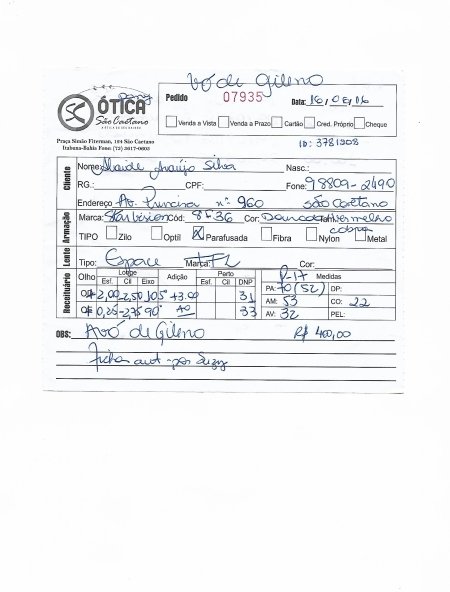 Vó de Gileno
ÓTICA
São Caetano
Praça Simão Fiterman, 104 São Caetano
Itabuna-Bahia Fone: (73) 3617-0602
Pedido 07935 Data:
Venda a Vista Venda a Prazo Cartão Cred. Próprio Cheque
ID: 3781208
Cliente
Nome: Araújo Silva Nasc.:
RG.: CPF: Fone: 98809-2490
Endereço Av. nº 960 São Caetano
Armação
Marca: Cód: Cor: vermelho
TIPO Zilo Optil X Parafusada Fibra Nylon Metal
Lente
Tipo: Espace Marca: Cor:
Receituário
Olho Longe Adição Perto DNP P-17 Medidas
Esf. Cil Eixo Esf. Cil PA: 70 (52) DP:
+2,00 -2,50 105° +3.00 31 AM: 53 CO: 22
33 AV: 32 PEL:
OBS: Avó de Gileno R$ 400,00
por Suzy